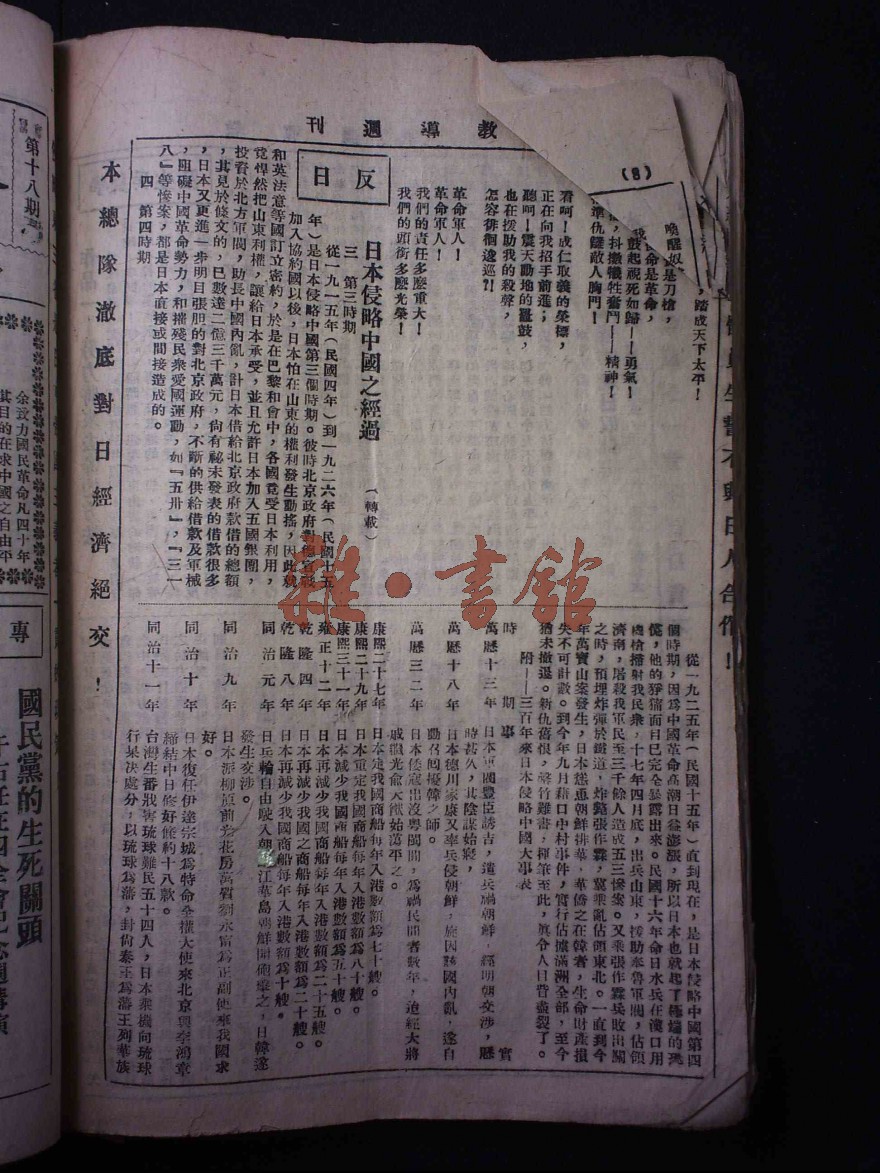 教導週刊
(8)
喚醒奴
是刀槍，
踏成天下太平！
命是革命，
鼓起視死如歸——勇氣！
抖擻犧牲奮鬥——精神！
準仇讎敵人胸門！
看呵！成仁取義的榮標，
正在向我招手前進；
聽呵！震天動地的鼙鼓，
也在援助我的殺聲，
怎容徘徊逡巡？！
革命軍人！
革命軍人！
我們的責任多麼重大！
我們的頭銜多麼光榮！
反日
日本侵略中國之經過
（轉載）
三　第三時期
從一九一五年（民國四年）到一九二六年（民國十五
年）是日本侵略中國第三個時期。彼時北京政府對德宣戰
加入協約國以後，日本怕在山東的權利發生動搖，因此就
和英法意等國訂立密約，於是在巴黎和會中，各國竟受日本利用，
竟悍然把山東利權，讓給日本承受，並且允許日本加入五國銀團，
投資於北方軍閥，助長中國內亂，計日本借給北京政府款借的總額
，其見於條文的，已數達二億三千萬元，尙有祕未發表的借款很多
，日本又更進一步明目張胆的對北京政府，不斷的供給借款及軍械
，阻礙中國革命勢力，和摧殘民衆愛國運動，如『五卅』，『三一
八』等慘案，都是日本直接或間接造成的。
四　第四時期
從一九二五年（民國十五年）直到現在，是日本侵略中國第四
個時期，因爲中國革命高潮日益澎漲，所以日本也就起了極端的恐
慌，他的猙獰面目已完全暴露出來。民國十六年命日水兵在漢口用
機槍掃射我民衆，十七年四月底，出兵山東，援助奉魯軍閥，佔領
濟南，屠殺我軍民至三千餘人造成五三慘案。又乘張作霖兵敗出關
之時，預埋炸彈於鐵道，炸斃張作霖，冀乘亂佔領東北。一直到今
年萬寶山案發生，日本慫恿朝鮮排華，華僑之在韓者，生命財產損
失不可計數。到今年九月藉口中村事件，實行佔據滿洲全部，至今
猶未撤退。新仇舊恨，罄竹難書，揮筆至此，眞令人目眥盡裂了。
附——三百年來日本侵略中國大事表
時期　事實
萬歷十三年　日本軍閥豐臣誘吉，遣兵禍朝鮮，經明朝交涉，歷
時甚久，其陰謀始寢，
萬歷十八年　日本德川家康又率兵侵朝鮮，施因該國內亂，遂自
動召回擾韓之師。
萬歷三二年　日本倭寇出沒粵閩間，爲禍民間者數年，迨經大將
戚繼光兪大猷始蕩平之。
康熙二十七年　日本定我國商船每年入港數額爲七十艘。
康熙二十九年　日本重定我國商船每年入港數額爲八十艘。
康熙三十一年　日本減少我國商船每年入港數額爲五十艘。
雍正十二年　日本再減少我國商船每年入港數額爲二十五艘。
乾隆四年　日本再減少我國之商船每年入港數額爲二十艘。
乾隆八年　日本再減少我國商船每年入港數額爲十艘。
同治元年　日兵輪自由駛入朝鮮江華島朝鮮開砲擊之，日韓遂
發生交涉。
同治九年　日本派柳原前光花房義質劉永甯爲正副使來我國求
好。
同治十年　日本復任伊達宗城爲特命全權大使來北京與李鴻章
締結中日修好條約十八款。
同治十一年　台灣生番戕害琉球難民五十四人，日本乘機向琉球
行果決處分，以琉球爲藩，封尙泰王爲藩王列華族
本總隊澈底對日經濟絕交！
生誓不與日人合作！
雜·書館
第十八期
余致力國民革命凡四十年
其目的在求中國之自由平
專
國民黨的生死關頭